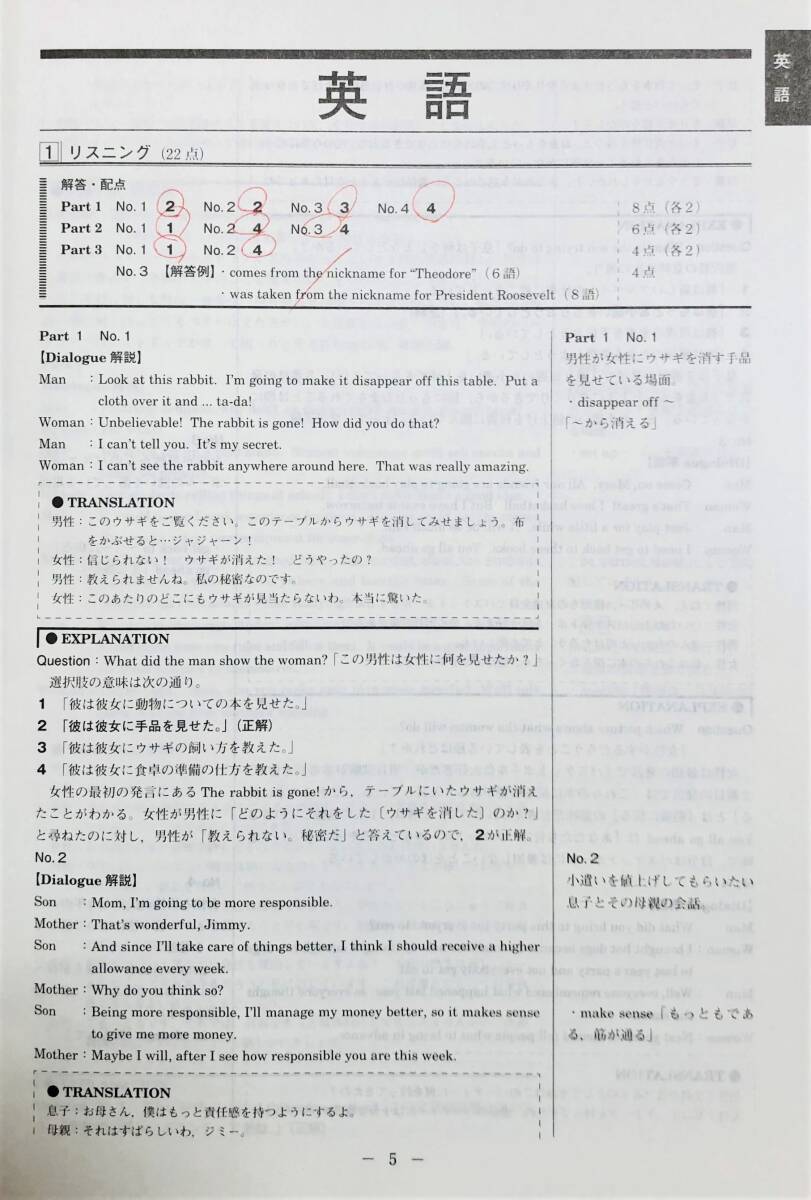 英語
英語
1 リスニング (22点)
解答・配点
Part 1 No. 1 2 No. 2 2 No. 3 3 No. 4 4 8点(各2)
Part 2 No. 1 1 No. 2 4 No. 3 4 6点(各2)
Part 3 No. 1 1 No. 2 4 4点(各2)
No. 3 【解答例】・comes from the nickname for “Theodore”(6語) 4点
・was taken from the nickname for President Roosevelt(8語)
Part 1 No. 1
【Dialogue 解説】
Man : Look at this rabbit. I'm going to make it disappear off this table. Put a
cloth over it and ... ta-da!
Woman : Unbelievable! The rabbit is gone! How did you do that?
Man : I can't tell you. It's my secret.
Woman : I can't see the rabbit anywhere around here. That was really amazing.
Part 1 No. 1
男性が女性にウサギを消す手品
を見せている場面。
・disappear off ~
「~から消える」
● TRANSLATION
男性:このウサギをご覧ください。このテーブルからウサギを消してみせましょう。布
をかぶせると…ジャジャーン!
女性:信じられない! ウサギが消えた! どうやったの?
男性:教えられませんね。私の秘密なのです。
女性:このあたりのどこにもウサギが見当たらないわ。本当に驚いた。
● EXPLANATION
Question : What did the man show the woman?「この男性は女性に何を見せたか?」
選択肢の意味は次の通り。
1 「彼は彼女に動物についての本を見せた。」
2 「彼は彼女に手品を見せた。」(正解)
3 「彼は彼女にウサギの飼い方を教えた。」
4 「彼は彼女に食卓の準備の仕方を教えた。」
女性の最初の発言にある The rabbit is gone! から、テーブルにいたウサギが消え
たことがわかる。女性が男性に「どのようにそれをした〔ウサギを消した〕のか?」
と尋ねたのに対し、男性が「教えられない。秘密だ」と答えているので、2が正解。
No. 2
【Dialogue 解説】
Son : Mom, I'm going to be more responsible.
Mother : That's wonderful, Jimmy.
Son : And since I'll take care of things better, I think I should receive a higher
allowance every week.
Mother : Why do you think so?
Son : Being more responsible, I'll manage my money better, so it makes sense
to give me more money.
Mother : Maybe I will, after I see how responsible you are this week.
No. 2
小遣いを値上げしてもらいたい
息子とその母親の会話。
・make sense「もっともであ
る、筋が通る」
● TRANSLATION
息子:お母さん、僕はもっと責任感を持つようにするよ。
母親:それはすばらしいわ、ジミー。
― 5 ―